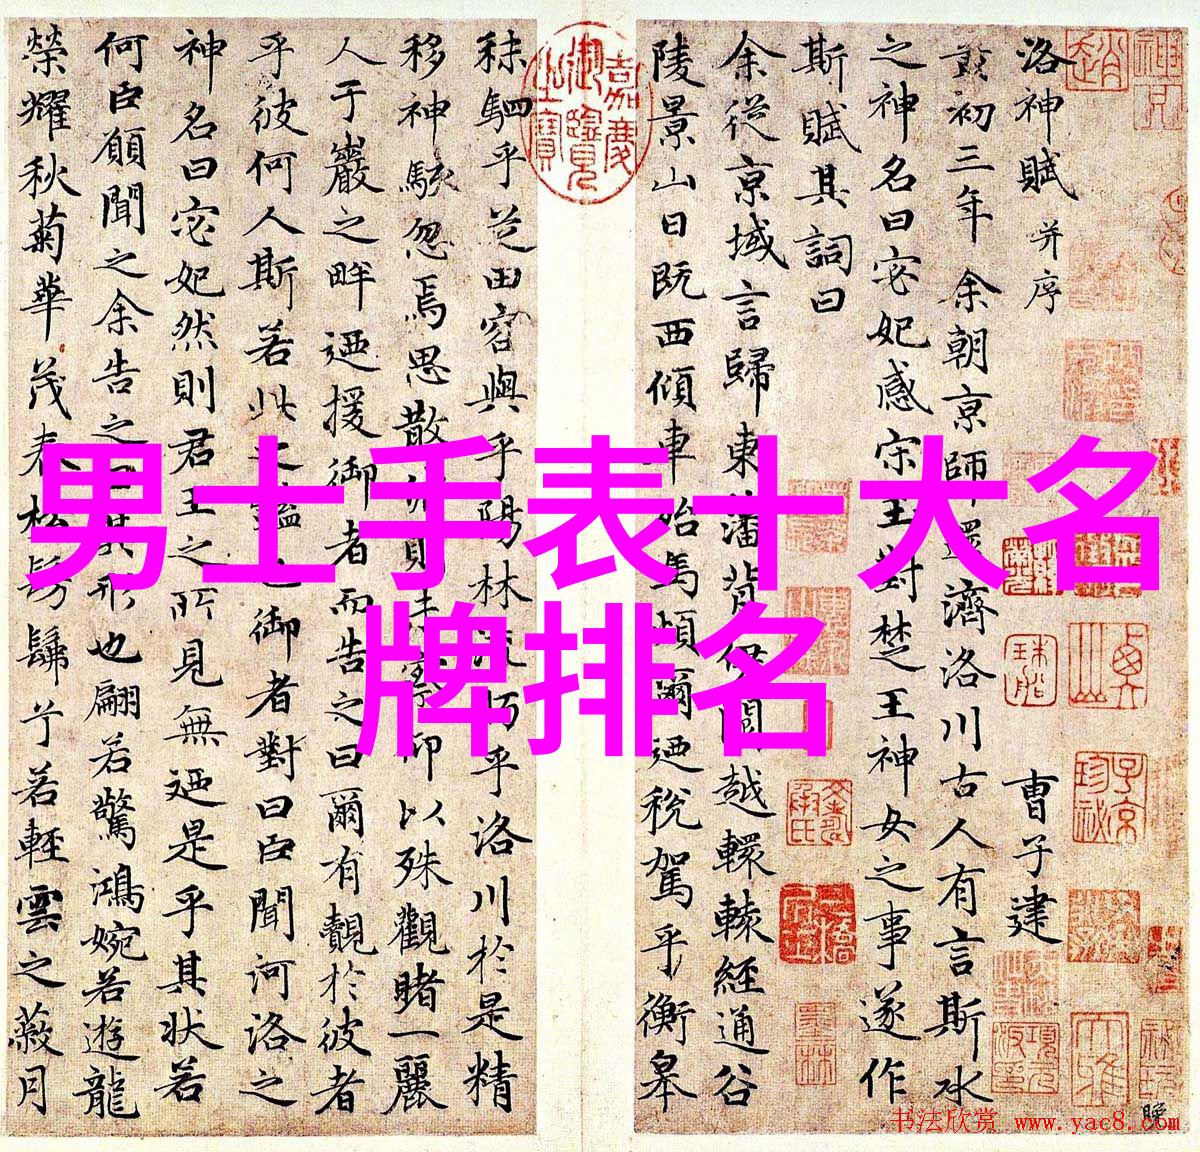 男士手表十大名
牌排名
洛神賦 并序 曹子建
黃初三年余朝京師還濟洛川古人有言斯水
之神名曰宓妃感宋王對楚王神女之事遂作
斯賦其詞曰
余從京域言歸東藩背伊闕越轘轅經通谷
陵景山日既西傾車殆馬煩爾迺稅駕乎衡皋
秣駟乎芝田容與乎陽林流眄乎洛川於是精
移神駭忽焉思散俯則未察仰以殊觀睹一麗
人于巖之畔迺援御者而告之曰爾有覿於彼者
乎彼何人斯若此之豔也御者對曰臣聞河洛之
神名曰宓妃然則君王之所見無迺是乎其状若
何臣願聞之余告之曰其形也翩若驚鴻婉若遊龍
榮耀秋菊華茂春松髣髴兮若輕雲之蔽月
嘉慶御覽之寶
书法欣赏 www.yac8.com